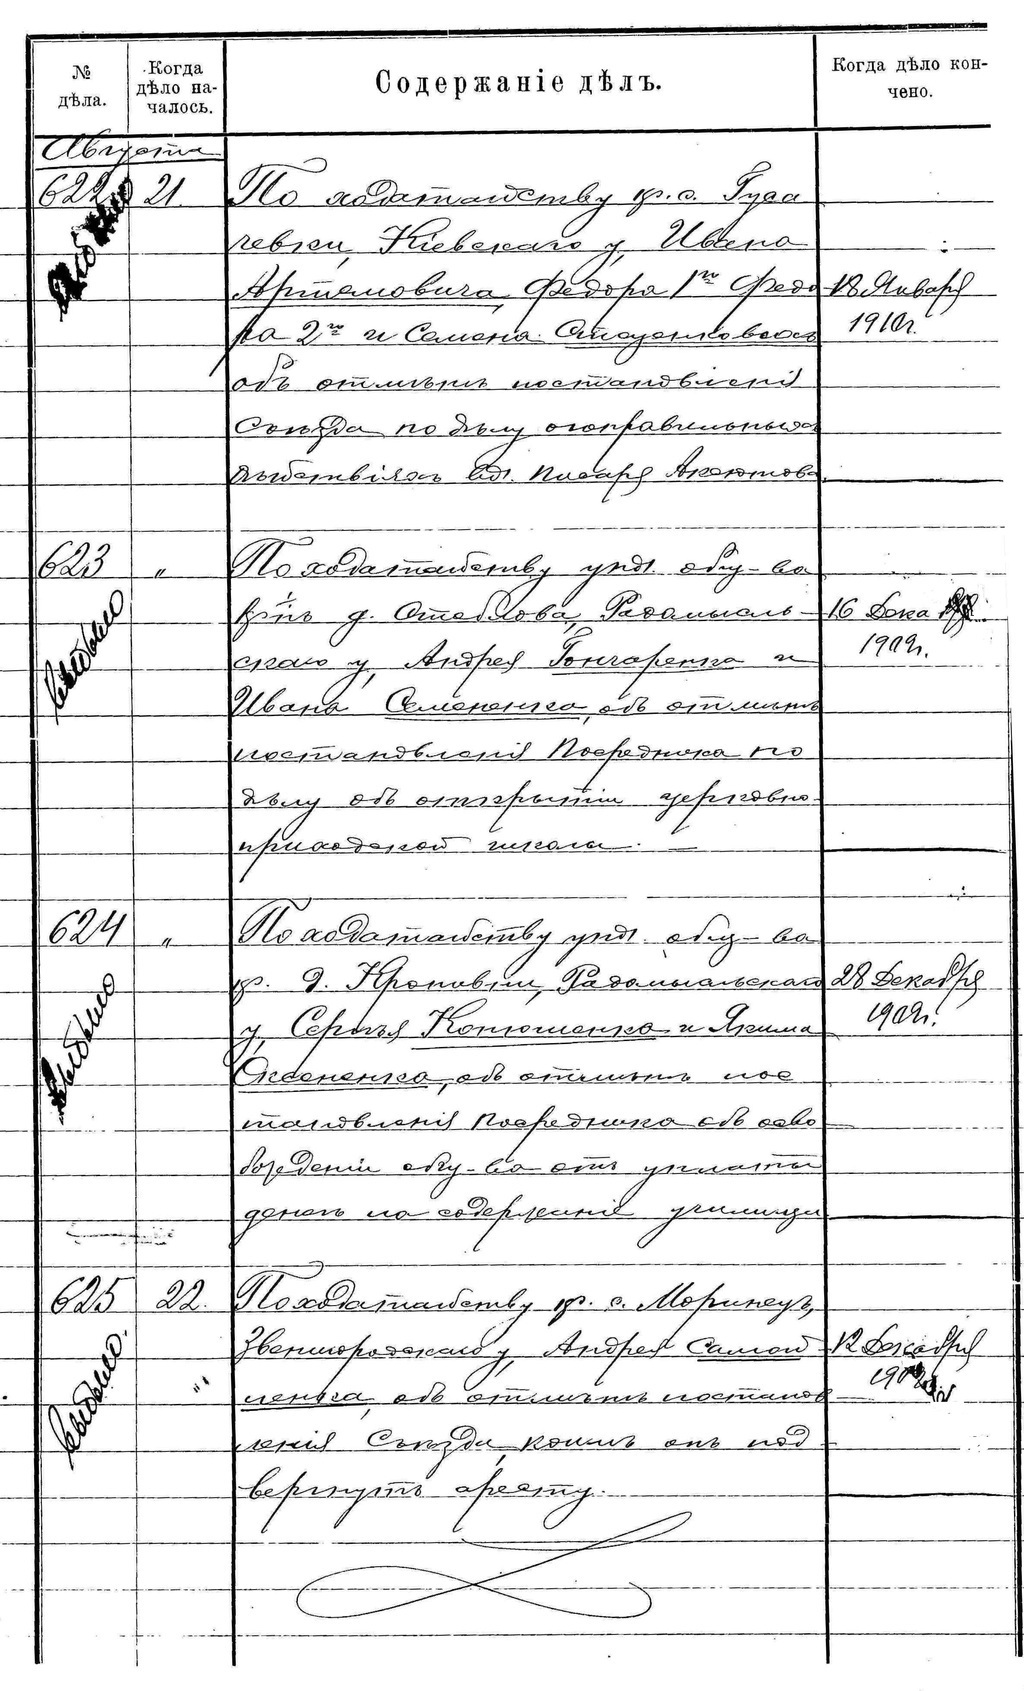 № дѣла.
Когда дѣло началось.
Содержаніе дѣлъ.
Когда дѣло кончено.
Августа
622 21.
выбыло
По ходатайству кр. с. Гуса
чевки, Кіевскаго у, Ивана
Артемовича, Федора 1го Федо
ра 2го и Семена Стеценковыхъ
объ отмѣнѣ постановленія
Съѣзда по дѣлу о неправильныхъ
дѣйствіяхъ вол. писаря
18 Января
1910г.
623 "
выбыло
По ходатайству упол. общ-ва
кр-нъ д. Ставлова, Радомысль-
скаго у, Андрея Гончаренка и
Ивана Семененка, объ отмѣнѣ
постановленія Посредника по
дѣлу объ открытіи церковно-
приходской школы. —
16 Дека
1909г.
624 "
выбыло
По ходатайству упол. общ-ва
кр. д. Кропивни, Радомысльскаго
у, Сергѣя Конюшенка и Якима
Оксененка, объ отмѣнѣ пос
тановленія Посредника объ осво
божденіи общ-ва отъ уплаты
денегъ на содержаніе училища
28 Декабря
1909г.
625 22.
выбыло.
По ходатайству кр. с. Моринецъ,
Звенигородскаго у, Андрея Самой
ленка, объ отмѣнѣ постанов
ленія Съѣзда, коимъ онъ под
вергнутъ аресту.
12 Декабря